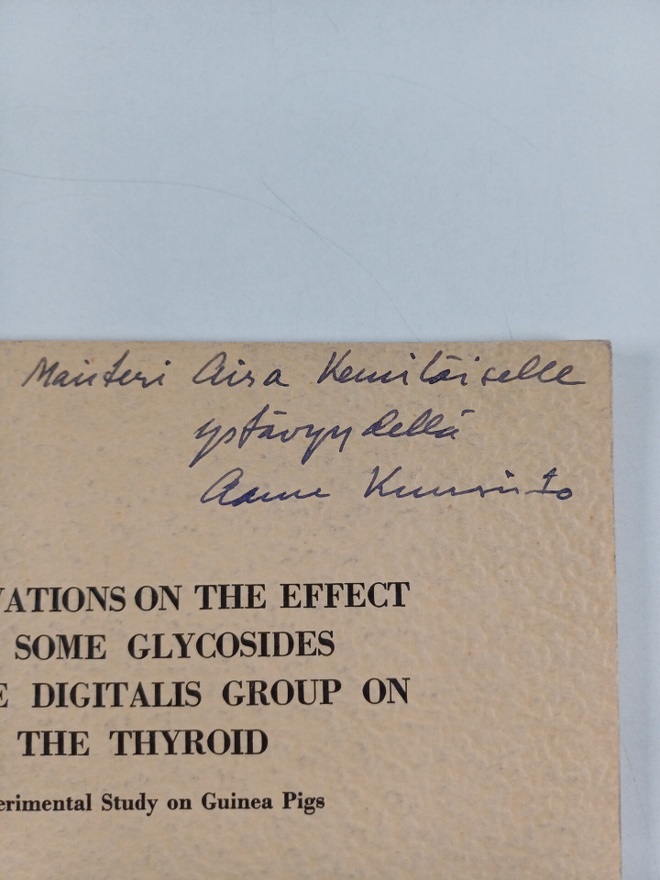 Maisteri Aira Kemiläiselle
ystävyydellä
Aarne Kuusisto
VATIONS ON THE EFFECT
SOME GLYCOSIDES
E DIGITALIS GROUP ON
THE THYROID
erimental Study on Guinea Pigs